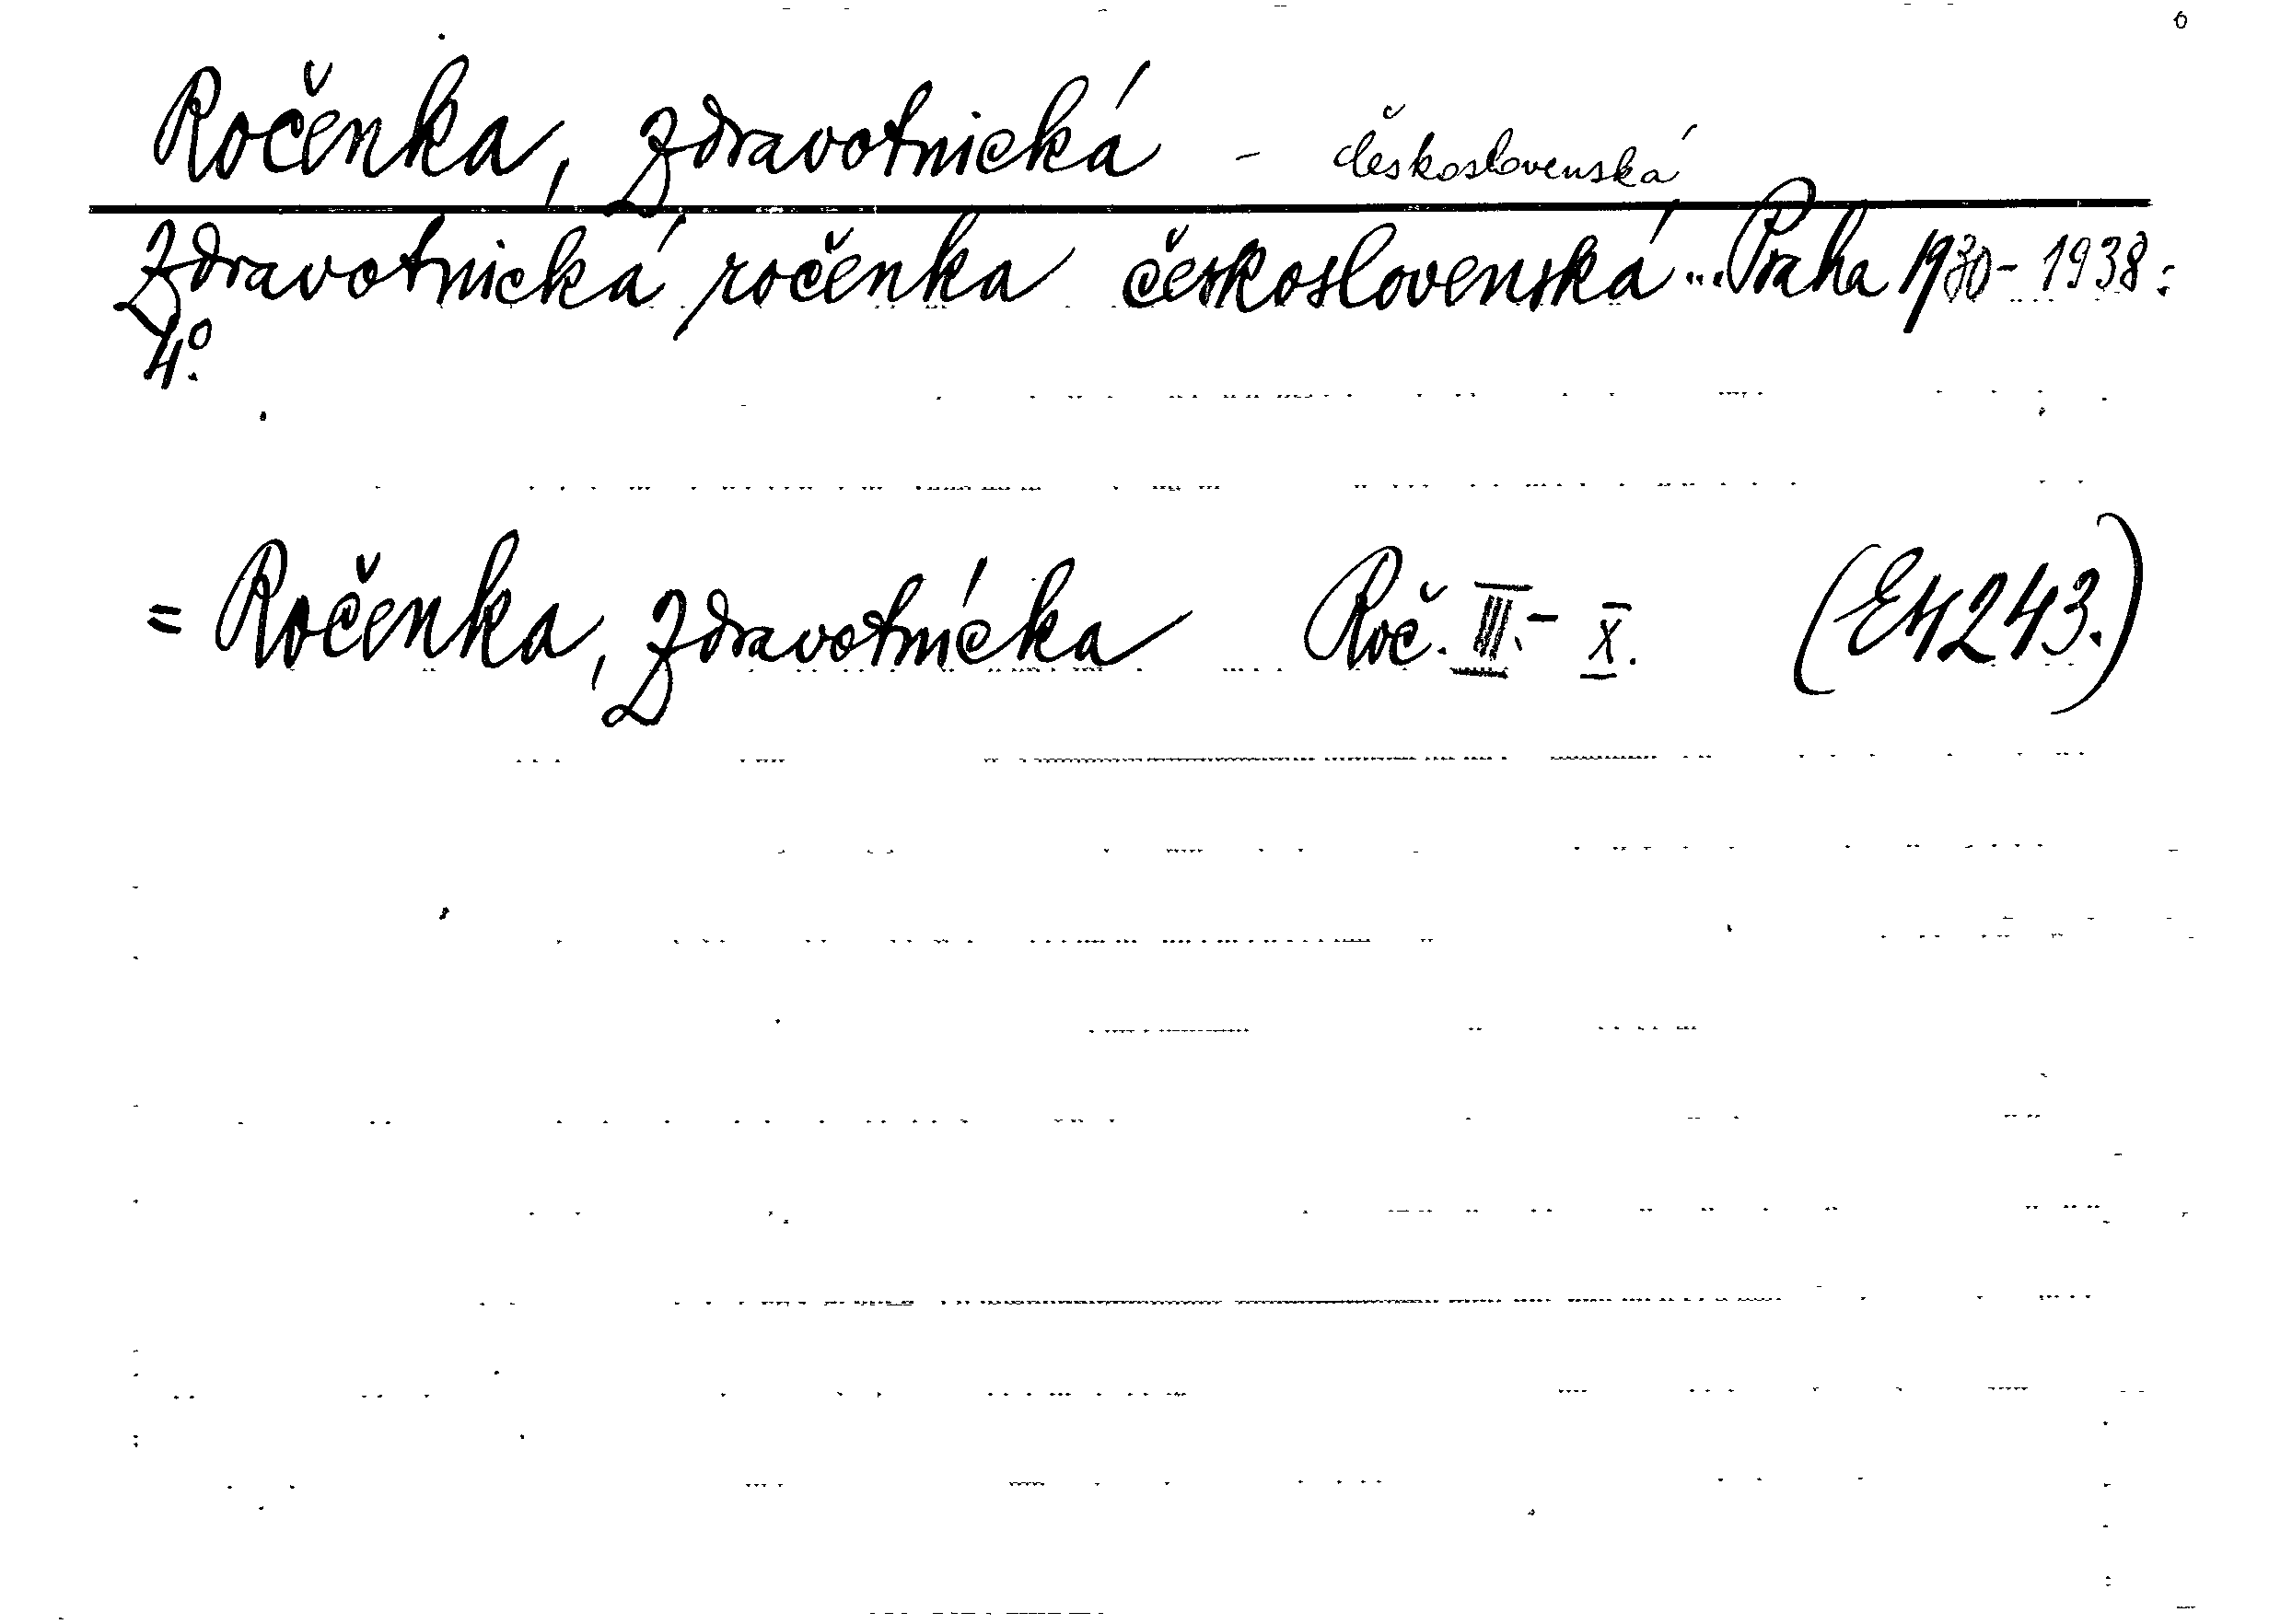 Ročenka, Zdravotnická - československá
Zdravotnická ročenka československá... Praha 1930-1938:
4°.
= Ročenka, Zdravotnícka Roč. III.- X. (E4243.)